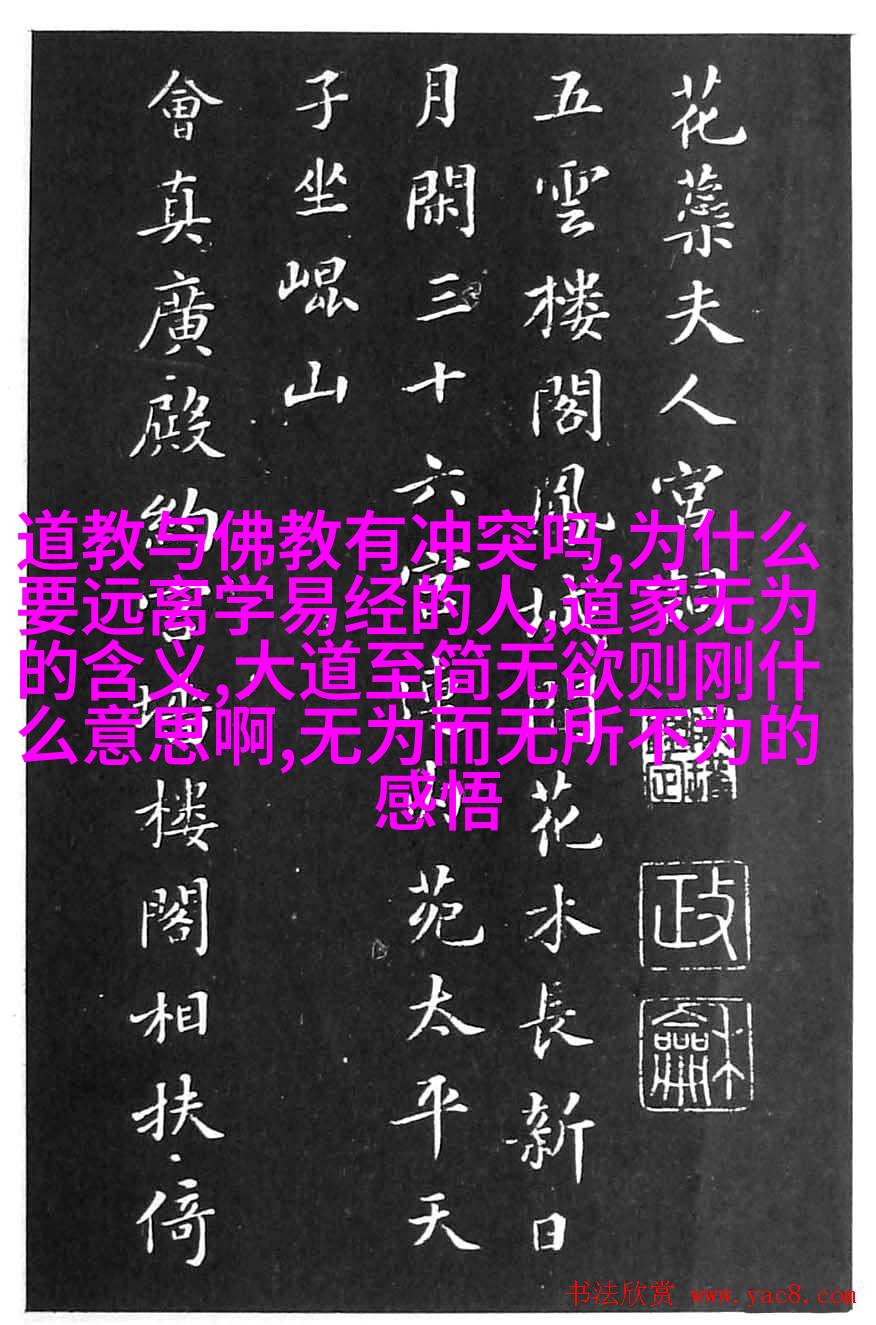 花蘂夫人宮詞
五雲楼閣鳳城間花木長新日
月閑三十六宮連内苑太平天
子坐崐山
會真廣殿約宮墻楼閣相扶倚
政
龢
道教与佛教有冲突吗,为什么
要远离学易经的人,道家无为
的含义,大道至简无欲则刚什
么意思啊,无为而无所不为的
感悟
书法欣赏 www.yac8.com